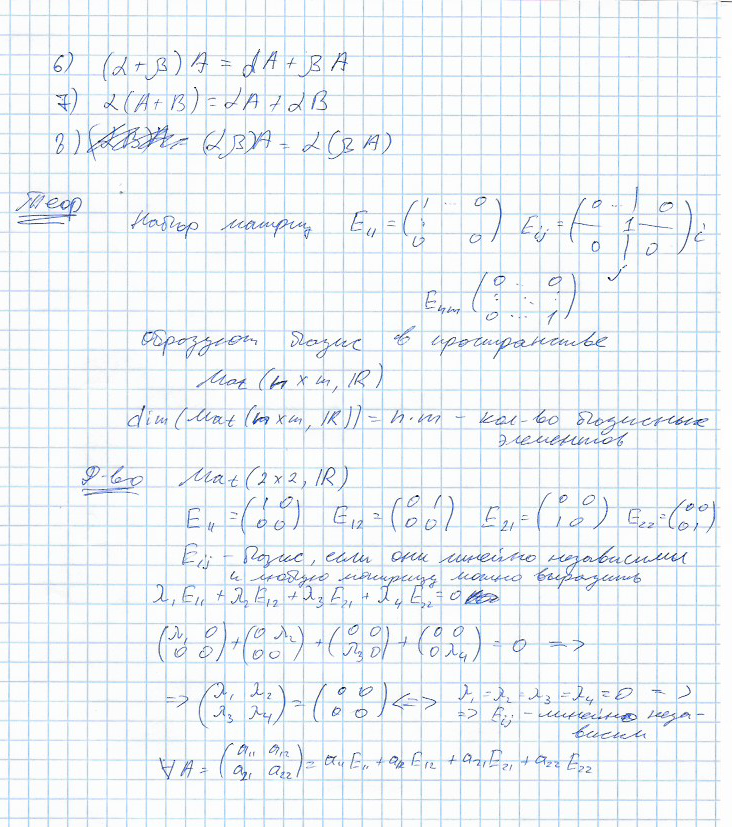 6) (α+β)A = αA + βA
7) α(A+B) = αA + αB
8) (αβ)A = α(βA)
Теор
Набор матриц E₁₁ = (1 ... 0 ⋮ 0 0) E_ij = (0 ... 0 1 0 0) i
j
E_nm (0 ... 0 ⋮ ⋱ ⋮ 0 ... 1)
образуют базис в пространстве
Mat (n × m, ℝ)
dim(Mat (n × m, ℝ)) = n·m – кол-во базисных
элементов
Д-во Mat (2×2, ℝ)
E₁₁ = (1 0 / 0 0) E₁₂ = (0 1 / 0 0) E₂₁ = (0 0 / 1 0) E₂₂ = (0 0 / 0 1)
E_ij – базис, если они линейно независимы
и любую матрицу можно выразить
λ₁E₁₁ + λ₂E₁₂ + λ₃E₂₁ + λ₄E₂₂ = 0
(λ₁ 0 / 0 0) + (0 λ₂ / 0 0) + (0 0 / λ₃ 0) + (0 0 / 0 λ₄) = 0 =>
=> (λ₁ λ₂ / λ₃ λ₄) = (0 0 / 0 0) <=> λ₁ = λ₂ = λ₃ = λ₄ = 0 =>
=> E_ij – линейно неза-
висим
∀A = (a₁₁ a₁₂ / a₂₁ a₂₂) = a₁₁E₁₁ + a₁₂E₁₂ + a₂₁E₂₁ + a₂₂E₂₂